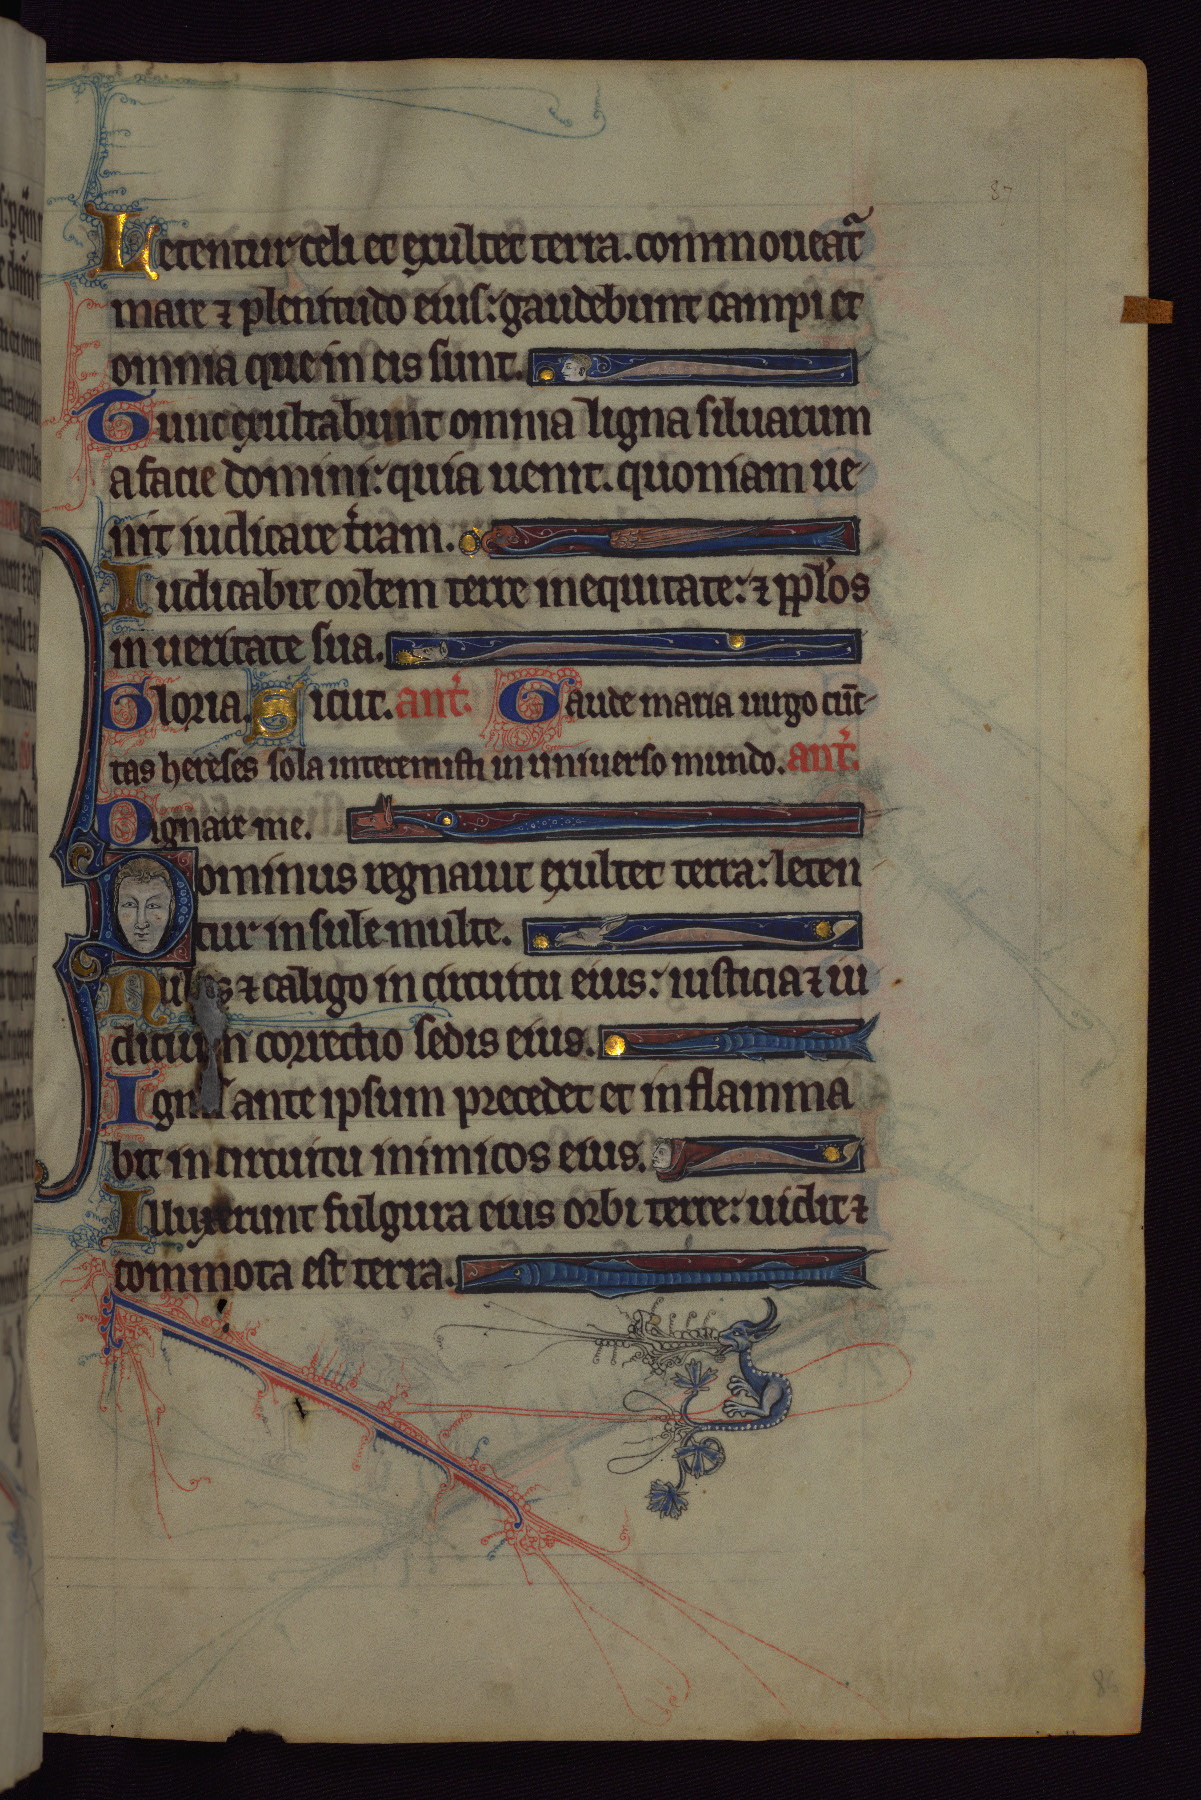 87
Letentur celi et exultet terra. commoueat᷑
mare ⁊ plenitudo eius: gaudebunt campi et
omnia que in eis sunt.
Tunc exultabunt omnia ligna siluarum
a facie domini: quia uenit. quoniam ue
nit iudicare t̉ram.
Iudicabit orbem terre in equitate: ⁊ pp̉los
in ueritate sua.
Gloria. Sicut. ant̉. Gaude maria uirgo cūc
tas hereses sola interemisti in uniuerso mundo. ant̉.
Dignare me.
Dominus regnauit exultet terra: leten
tur insule multe.
Nubes ⁊ caligo in circuitu eius: iusticia ⁊ iu
dicium correctio sedis eius.
Ignis ante ipsum precedet et inflamma
bit in circuitu inimicos eius.
Illuxerunt fulgura eius orbi terre: uidit ⁊
commota est terra.
86